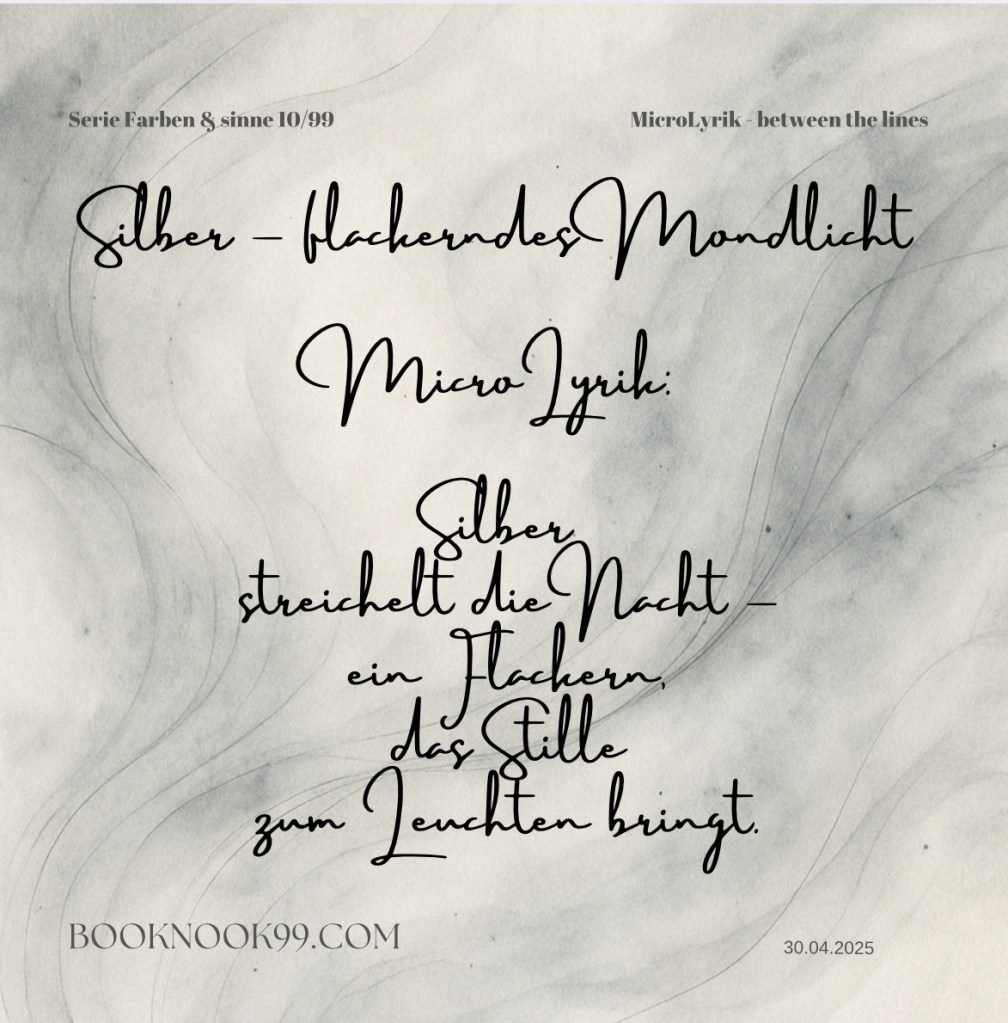 Serie Farben & sinne 10/99
MicroLyrik - between the lines
Silber – flackerndes Mondlicht
MicroLyrik:
Silber
streichelt die Nacht –
ein Flackern,
das Stille
zum Leuchten bringt.
BOOKNOOK99.COM
30.04.2025